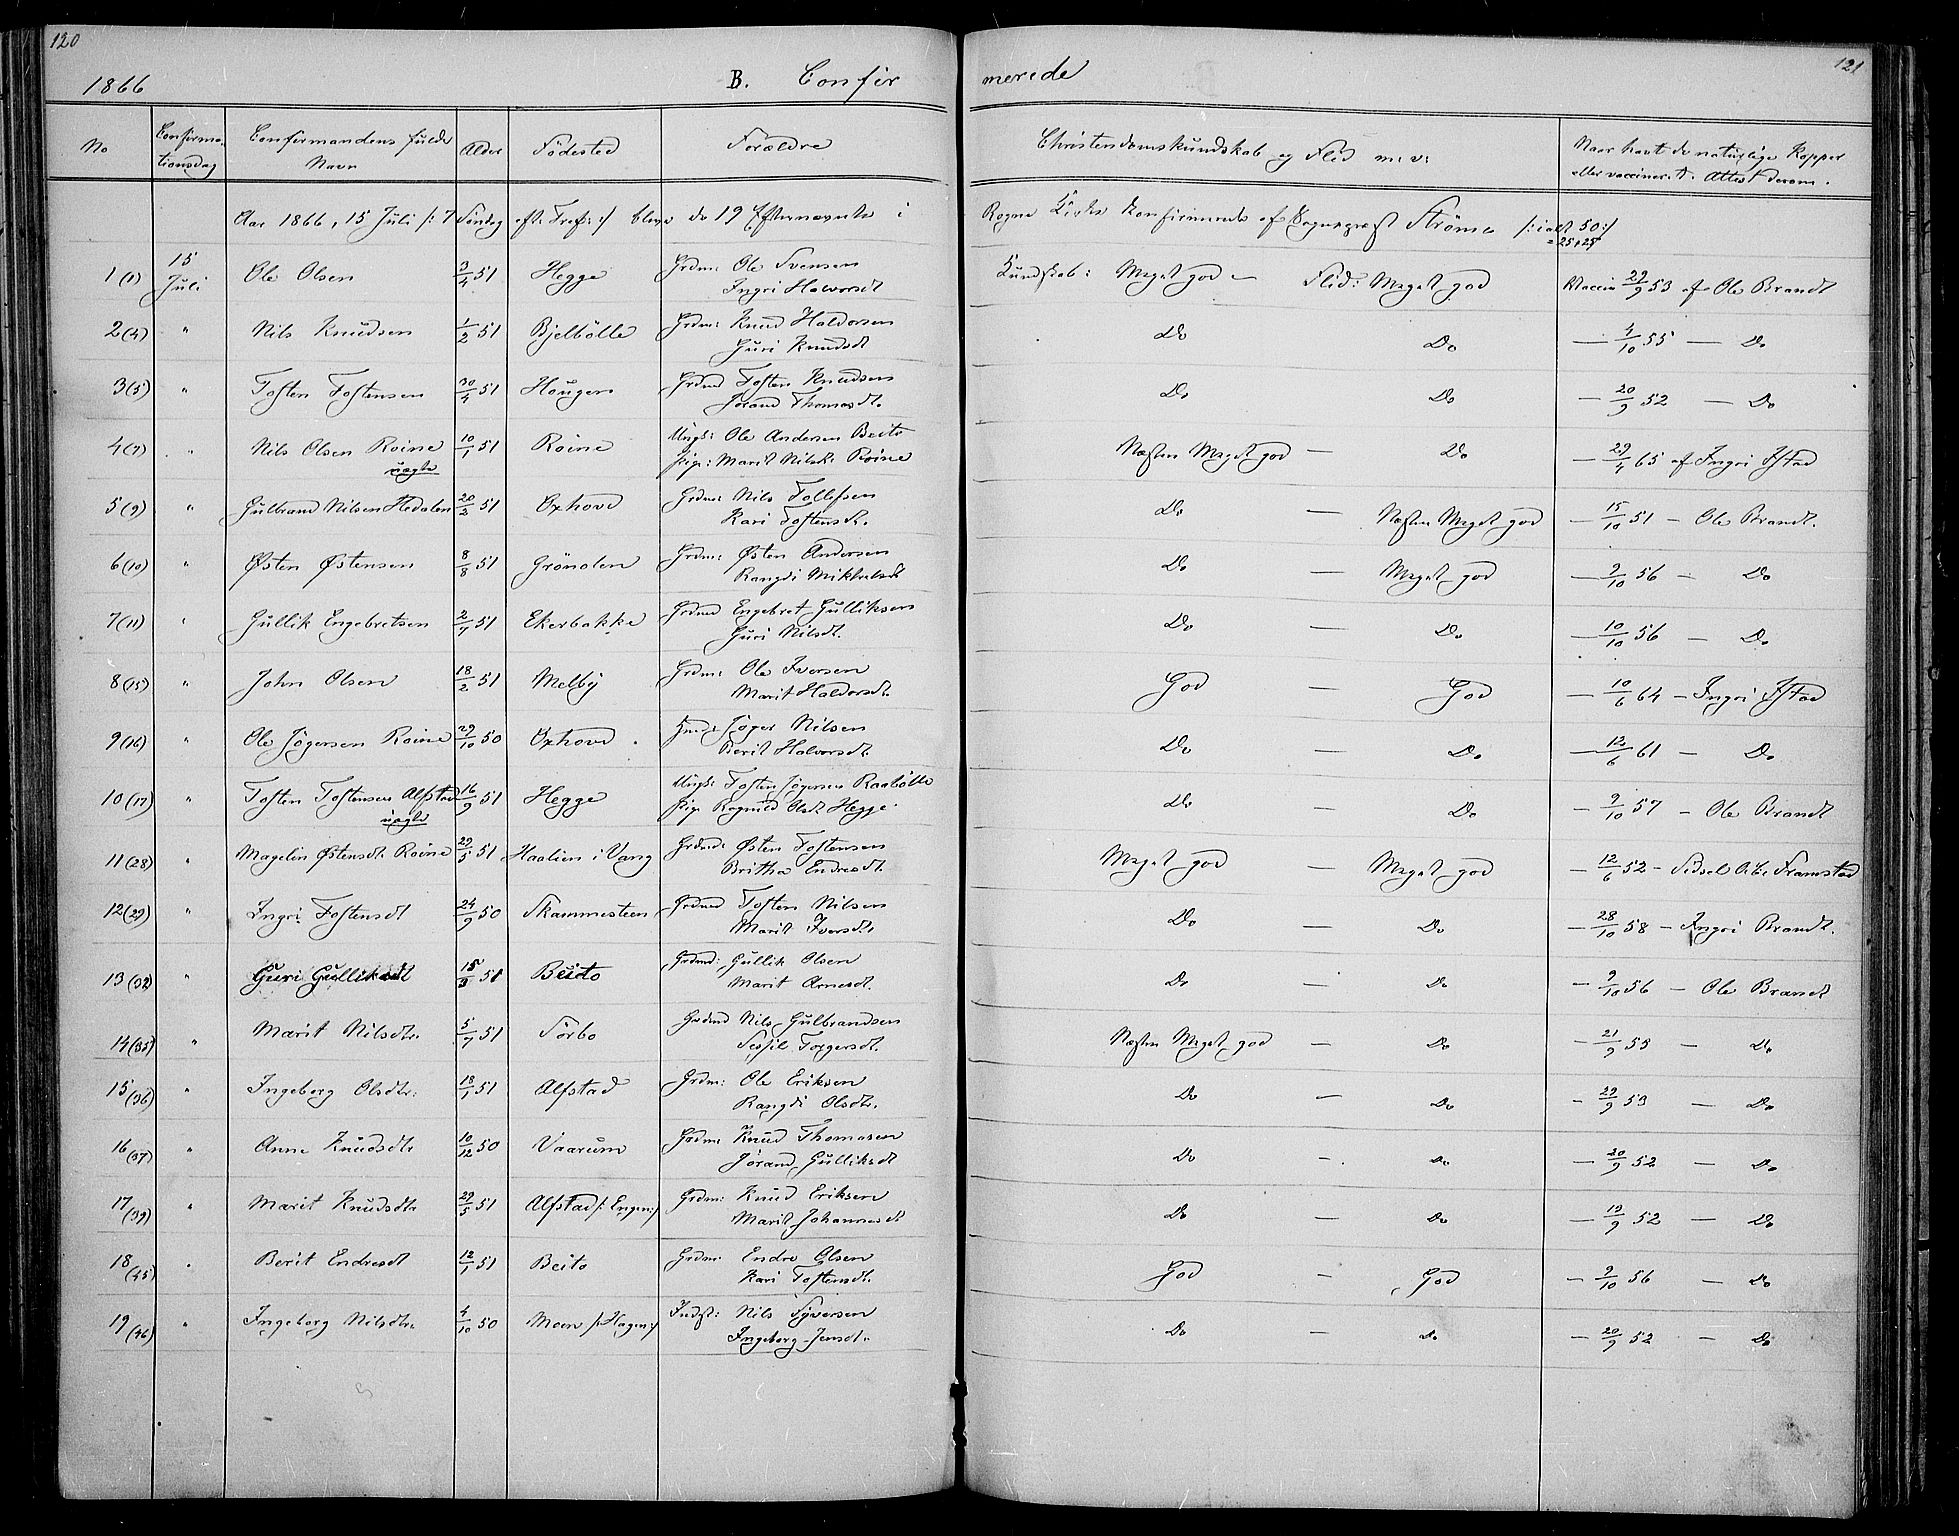 120
1866 B. Confir merede 121
No Confirmationsdag Confirmandens fulde Navn Alder Födested Forældre Christendomskundskab og Flid m: v: Naar havt de naturlige Kopper eller vaccineret. Attest derom.
Aar 1866, 15 Juli /: 7 Söndag eft: Tref: :/ bleve de 19 Efternævnte i Rogne Kirke konfirmerede af Sogneprest Ströme /: ialt 50 :/
= 25+25
1 (1) 15 Juli Ole Olsen 3/4 51 Hegge Grdm: Ole Svensen Kundskab: Meget god – Flid: Meget god Vaccin 29/9 53 af Ole Brandt
Ingri Halvorsdt
2 (4) " Nils Knudsen 1/2 51 Bjelbölle Grdm: Knud Haldorsen Do Do – 4/10 55 – Do
Guri Knudsdt
3 (5) " Tosten Tostensen 30/4 51 Hougen Grdmd Tosten Knudsen Do Do – 20/9 52 – Do
Jörand Thomasdt.
4 (7) " Nils Olsen Roine 10/1 51 Roine Ungk: Ole Andersen Beito Næsten Meget god – Do – 29/4 65 af Ingri Istad
uægte Pige: Marit Nilsdt. Roine
5 (9) " Gulbrand Nilsen Hedalen 20/2 51 Oxhovd Grdm: Nils Tollefsen Do – Næsten Meget god – 15/10 51 – Ole Brandt.
Kari Tostensdt.
6 (10) " Østen Østensen 8/8 51 Grönolen Grdm: Østen Andersen Do – Meget god – 9/10 56 – Do
Rangdi Mikkelsdt
7 (11) " Gullik Engebretsen 2/7 51 Ekerbakke Grdmd Engebret Gulliksen Do – Do – 10/10 56 – Do
Guri Nilsdt.
8 (15) " John Olsen 18/2 51 Melby Grdm: Ole Iversen God – God – 10/6 64 – Ingri Istad
Marit Haldorsdt.
9 (16) " Ole Jögersen Roine 29/10 50 Oxhovd Jöger Nilsen Do – Do – 12/6 61 – Do
Berit Halvorsdt.
10 (17) " Tosten Tostensen Alfstad 16/9 51 Hegge Ungk: Tosten Jögersen Raabölle Do – Do – 9/10 57 – Ole Brandt
uægte Pige Ragnild Olsdt Hegge
11 (28) " Magelin Østensdt. Roine 29/5 51 Haalien i Vang Grdmd: Østen Tostensen Meget god – Meget god – 12/6 52 – Sidsel Framstad
Britha Endresdt.
12 (29) " Ingri Tostensdt 24/9 50 Skammesteen Grdmd Tosten Nilsen Do – Do – 28/10 58 – Ingri Brandt.
Marit Iversdt.
13 (32) " Guri Gulliksdt 15/3 51 Beito Grdmd: Gullik Olsen Do – Do – 9/10 56 – Ole Brandt
Marit Arnesdt.
14 (35) " Marit Nilsdtr. 5/7 51 Sörbo Grdmd Nils Gulbrandsen Næsten Meget god – Do – 21/9 55 – Do
Torgersdt.
15 (36) " Ingeborg Olsdtr: 18/1 51 Alfstad Grdm: Ole Eriksen Do – Do – 29/9 53 – Do
Rangdi Olsdtr.
16 (37) " Anne Knudsdtr 10/12 50 Vaarum Grdm: Knud Thomasen Do – Do – 20/9 52 – Do
Jörand Gulliksdt
17 (39) " Marit Knudsdtr 29/5 51 Alfstad /: Engen :/ Grdm: Knud Eriksen Do – Do – 19/9 52 – Do
Marit Johannesdt
18 (45) " Berit Endresdt 12/1 51 Beito Grdm: Endre Olsen God – God – 9/10 56 – Do
Kari Tostensdt.
19 (46) " Ingeborg Nilsdtr. 4/10 50 Moen /: Hagen :/ Indst: Nils Syversen Do – Do – 20/9 52 – Do
Ingeborg Jensdt.